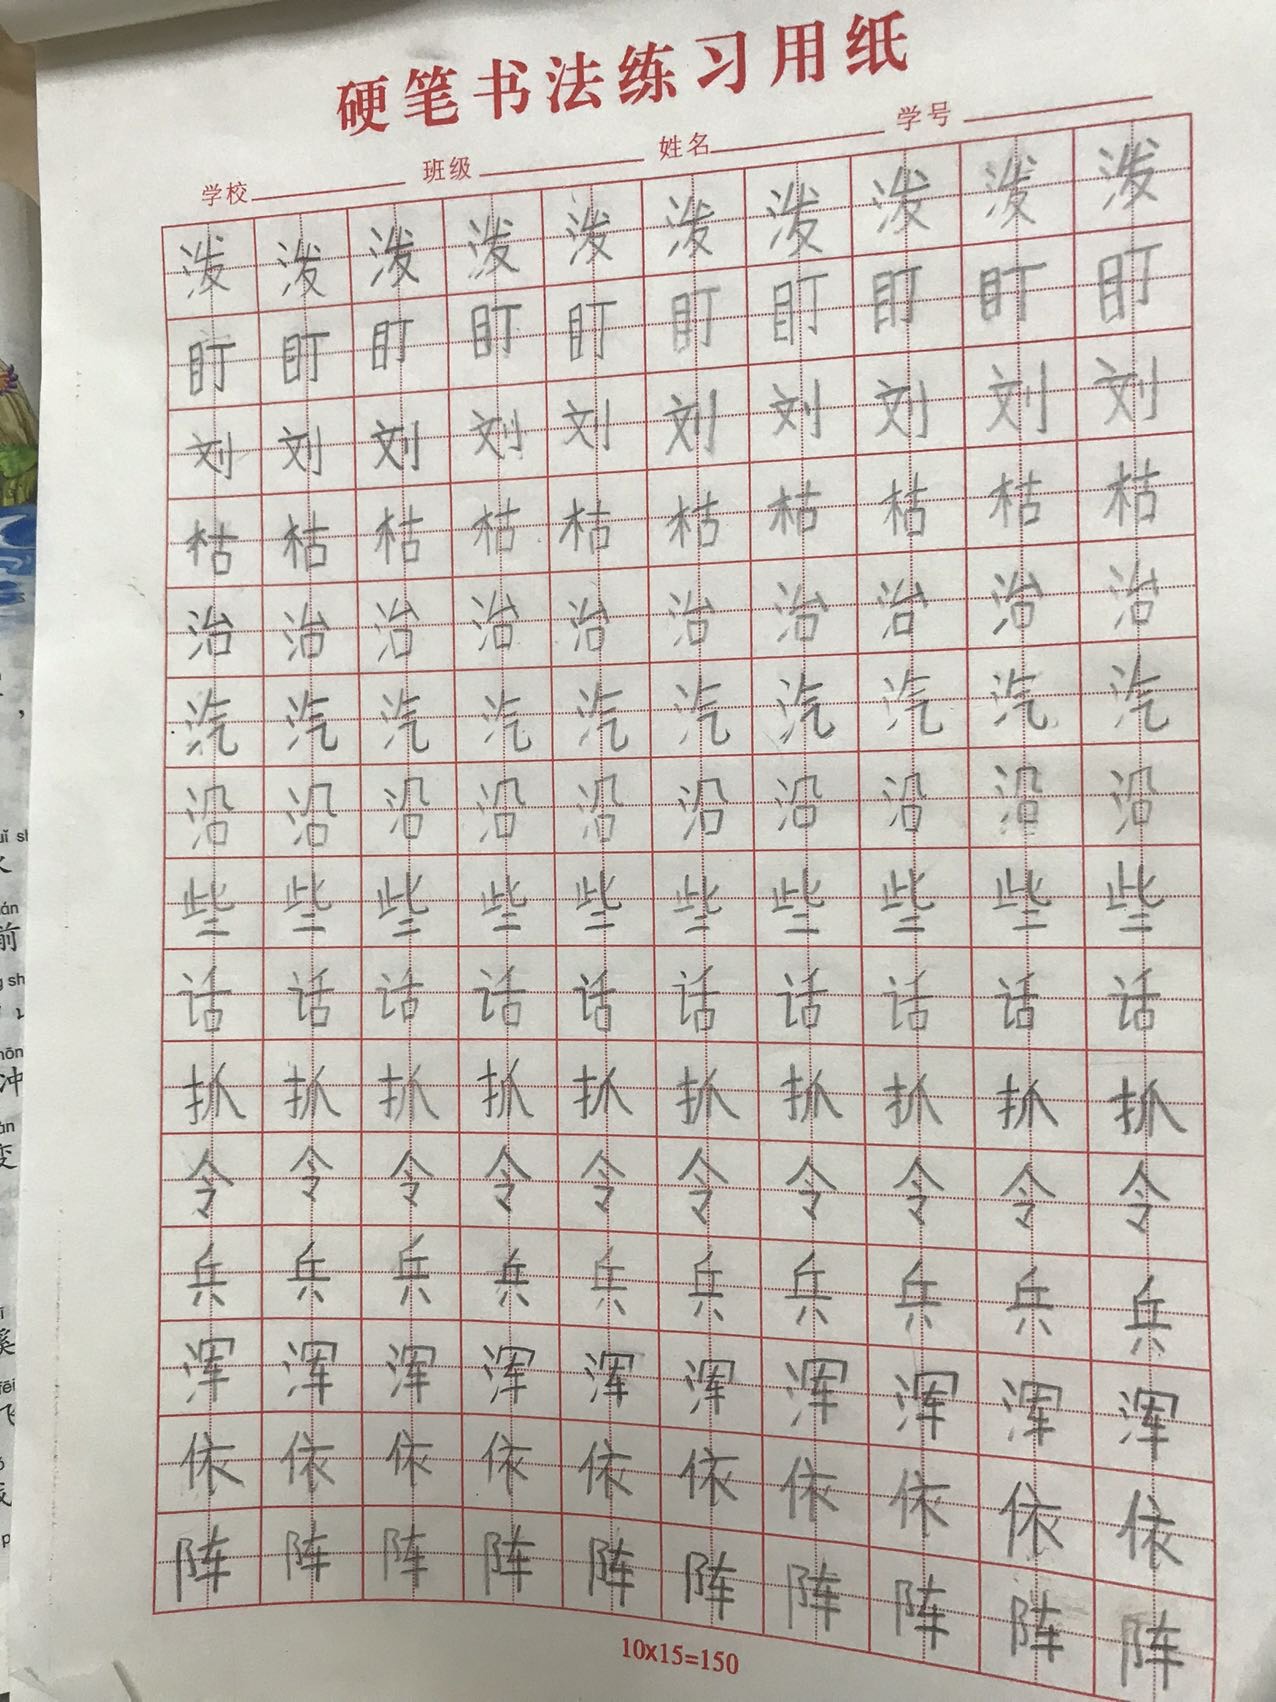 硬笔书法练习用纸
学校 班级 姓名 学号
泼泼泼泼泼泼泼泼泼泼
盯盯盯盯盯盯盯盯盯盯
刘刘刘刘刘刘刘刘刘刘
枯枯枯枯枯枯枯枯枯枯
治治治治治治治治治治
汽汽汽汽汽汽汽汽汽汽
沿沿沿沿沿沿沿沿沿沿
些些些些些些些些些些
话话话话话话话话话话
抓抓抓抓抓抓抓抓抓抓
令令令令令令令令令令
兵兵兵兵兵兵兵兵兵兵
浑浑浑浑浑浑浑浑浑浑
依依依依依依依依依依
阵阵阵阵阵阵阵阵阵阵
10x15=150
前
冲